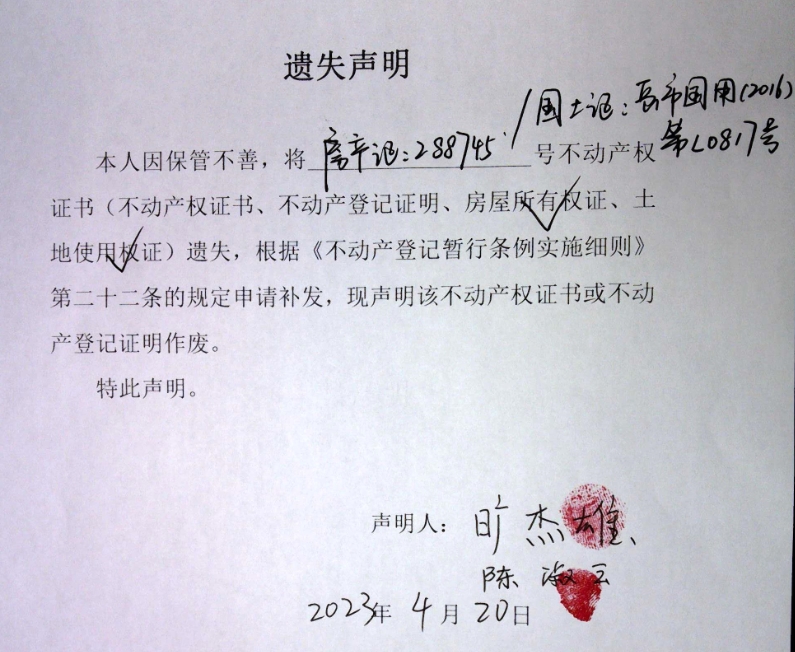 遗失声明
国土证:岳市国用(2016)
第L0817号
本人因保管不善,将房产证:288745号不动产权
证书(不动产权证书、不动产登记证明、房屋所有权证、土
地使用权证)遗失,根据《不动产登记暂行条例实施细则》
第二十二条的规定申请补发,现声明该不动产权证书或不动
产登记证明作废。
特此声明。
声明人:旷杰雄
陈淑云
2023年4月20日